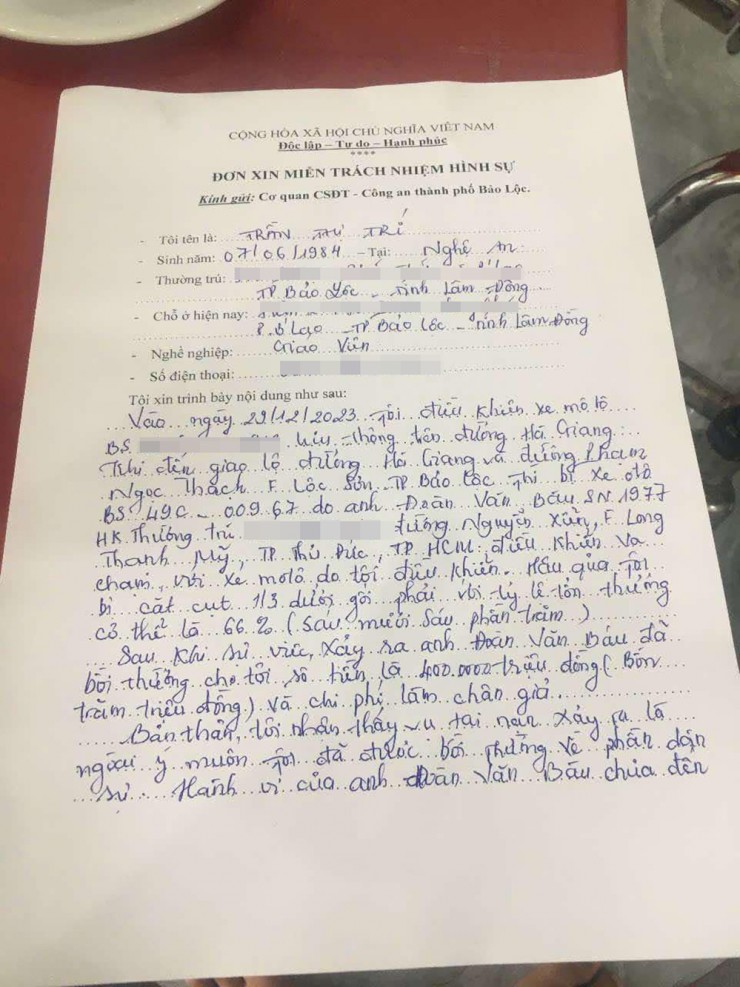 CỘNG HÒA XÃ HỘI CHỦ NGHĨA VIỆT NAM
Độc lập – Tự do – Hạnh phúc
****
ĐƠN XIN MIỄN TRÁCH NHIỆM HÌNH SỰ
Kính gửi: Cơ quan CSĐT - Công an thành phố Bảo Lộc.
- Tôi tên là: TRẦN THỊ TRÍ
- Sinh năm: 07/06/1984 – Tại: Nghệ An
- Thường trú:
TP Bảo Lộc - Tỉnh Lâm Đồng
- Chỗ ở hiện nay:
P. B'Lao - TP Bảo Lộc - Tỉnh Lâm Đồng
- Nghề nghiệp: Giáo Viên
- Số điện thoại:
Tôi xin trình bày nội dung như sau:
Vào ngày 29/12/2023 Tôi điều khiển xe mô tô
BS lưu thông trên đường Hà Giang
Khi đến giao lộ đường Hà Giang và đường Phạm
Ngọc Thạch F. Lộc Sơn, TP Bảo Lộc Thì bị xe ôtô
BS 49C - 009.67 do anh Đoàn Văn Báu SN 1977
HK Thường trú đường Nguyễn Xiển, F. Long
Thạnh Mỹ, TP Thủ Đức, TP HCM điều khiển va
chạm với xe môtô do tôi điều khiển. Hậu quả Tôi
bị cắt cụt 1/3 dưới gối phải với tỷ lệ tổn thương
cơ thể là 66% (sáu mươi sáu phần trăm)
Sau khi sự việc xảy ra anh Đoàn Văn Báu đã
bồi thường cho tôi số tiền là 400.000 triệu đồng (Bốn
trăm triệu đồng) và chi phí làm chân giả
Bản thân tôi nhận thấy vụ tai nạn xảy ra là
ngoài ý muốn. Tôi đã được bồi thường về phần dân
sự. Hành vi của anh Đoàn Văn Báu chưa đến